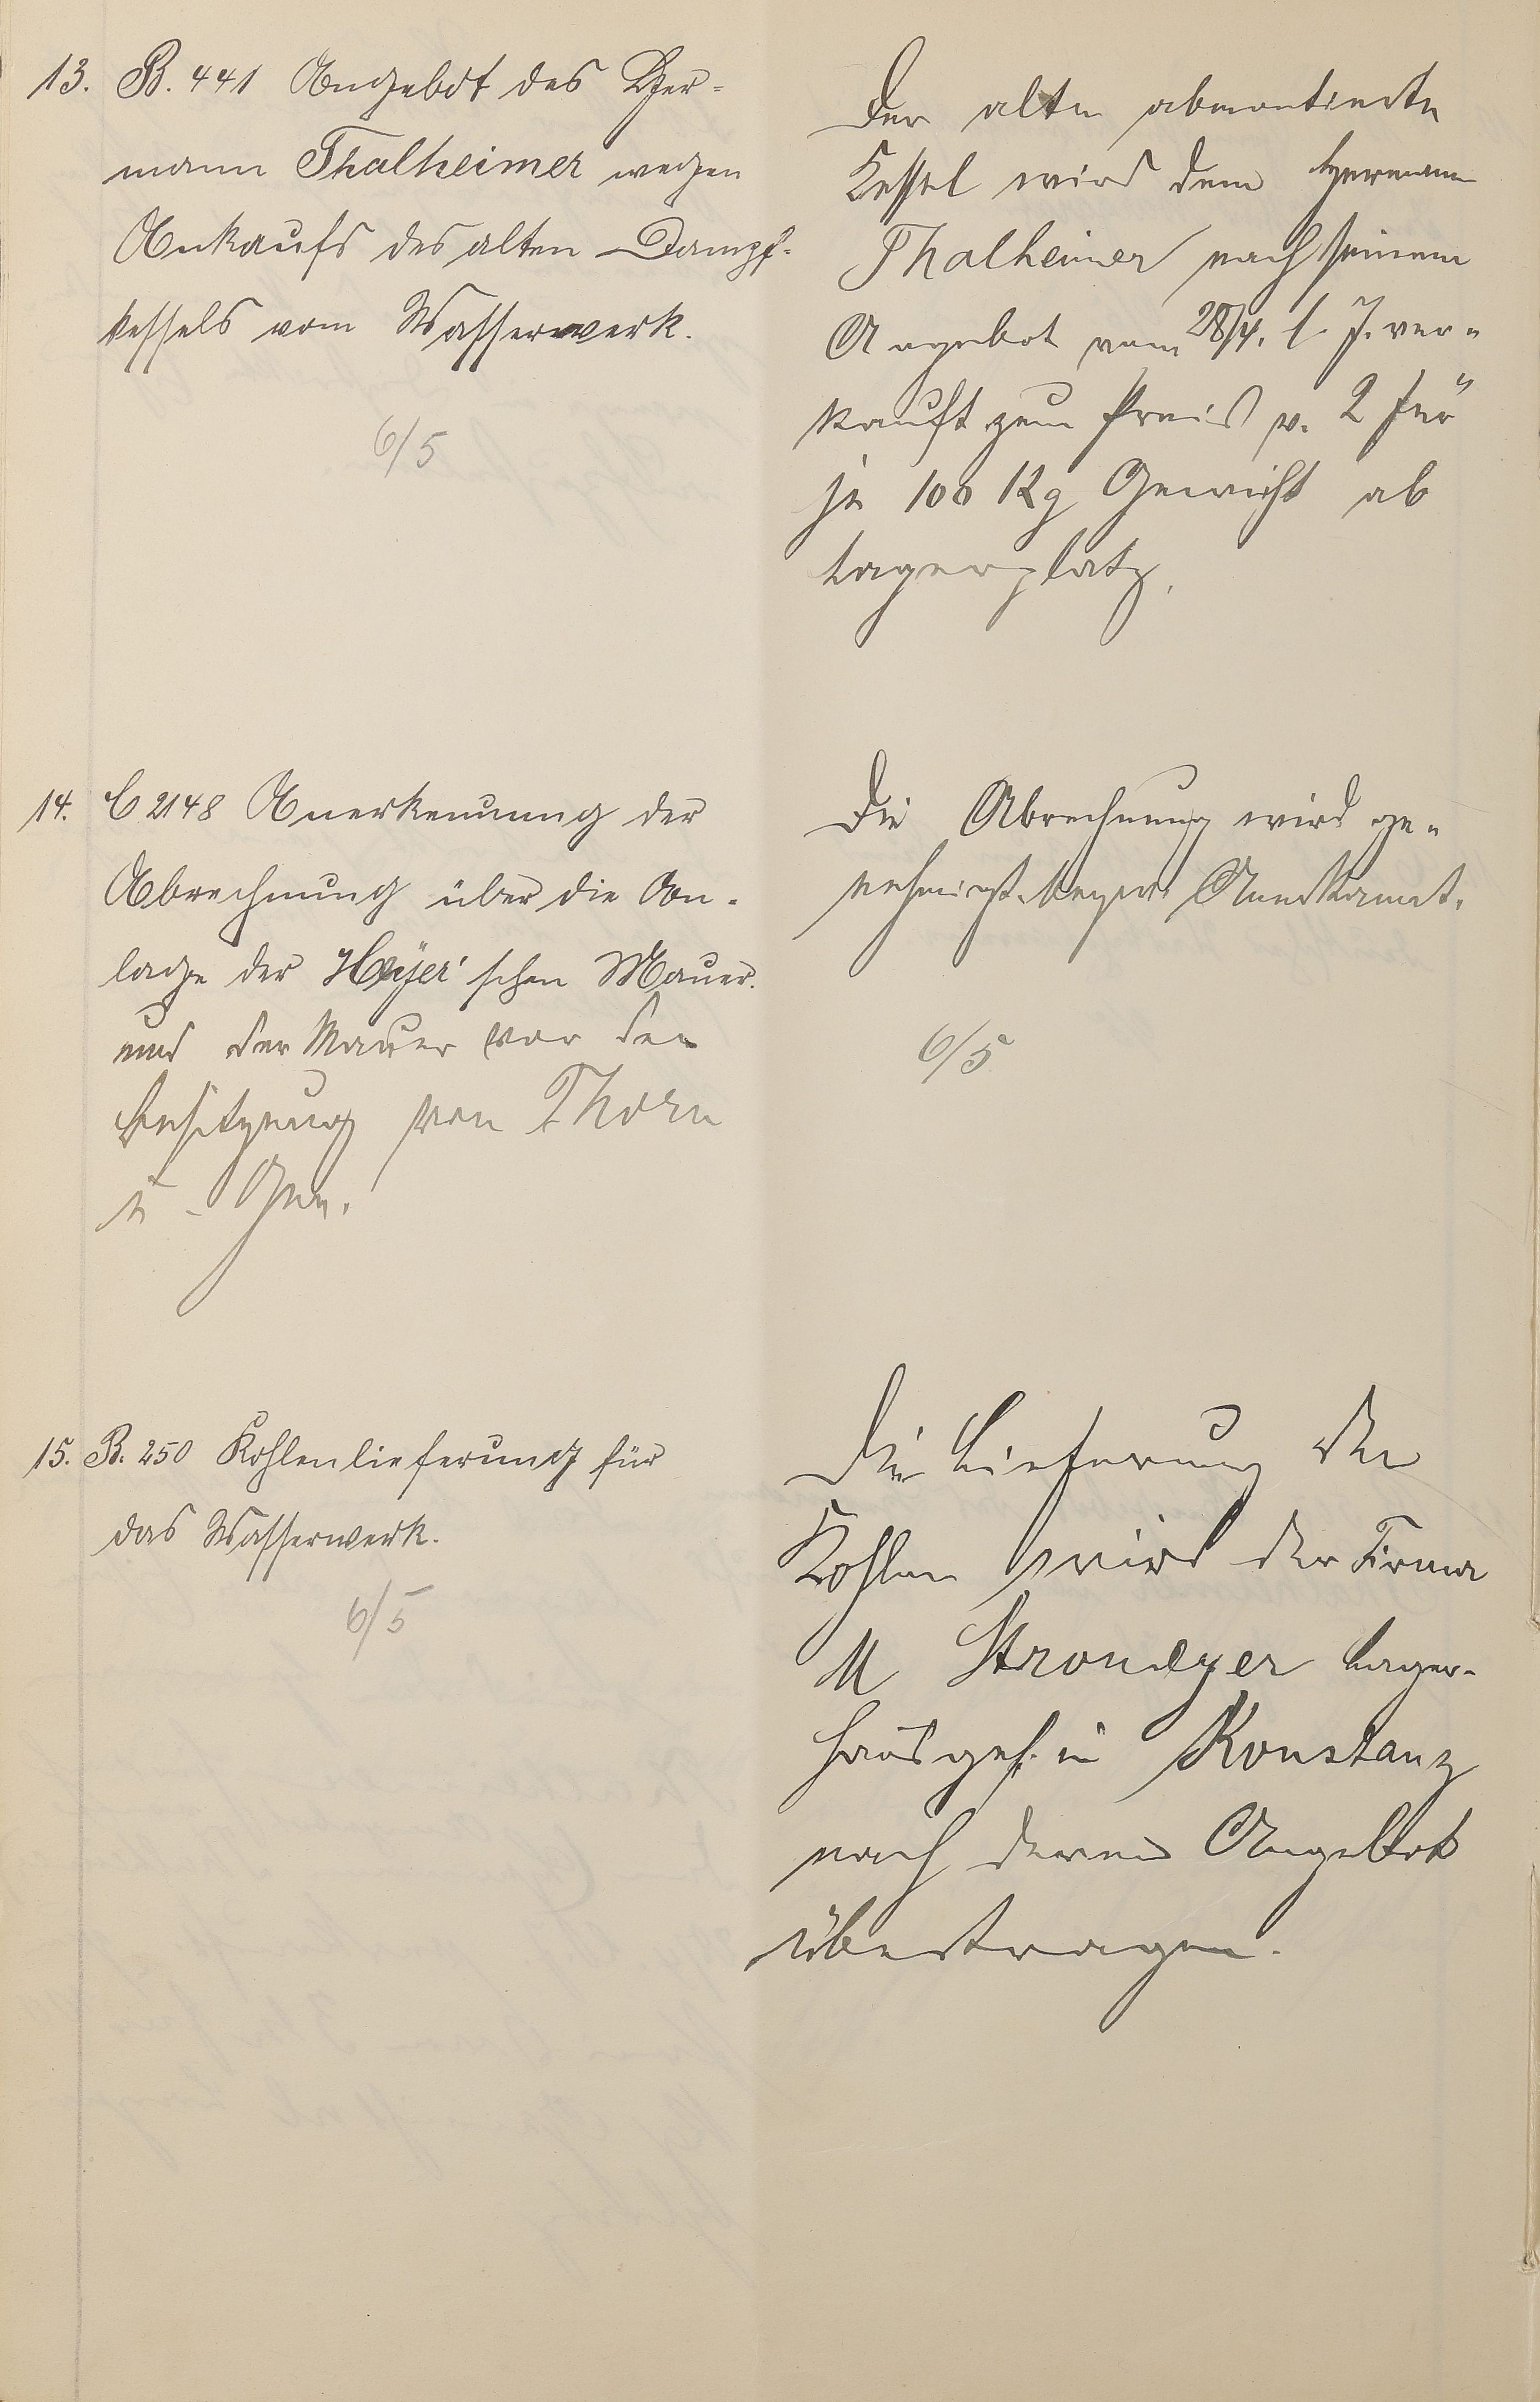 13. B. 441 Angebot des Her-
mann Thalheimer wegen
Ankaufs des alten Dampf-
kessels vom Wasserwerk.
6/5
Der alte abmontierte
Kessel wird dem Hermann
Thalheimer nach seinem
Angebot vom 28/4. l. J. ver-
kauft zum Preis v. 2 für
je 100 Kg Gewicht ab
Lagerplatz.
14. C 2148 Anerkennung der
Abrechnung über die An-
lage der Heyer'schen Mauer.
und der Mauer vor der
Besitzung von Thorn
u. Gen.
Die Abrechnung wird ge-
nehmigt bezw. Anerkannt.
6/5
15. B. 250 Kohlenlieferung für
das Wasserwerk.
6/5
Die Lieferung der
Kohlen wird der Firma
M Stromeyer Lager-
hausges. in Konstanz
nach deren Angebot
übertragen.